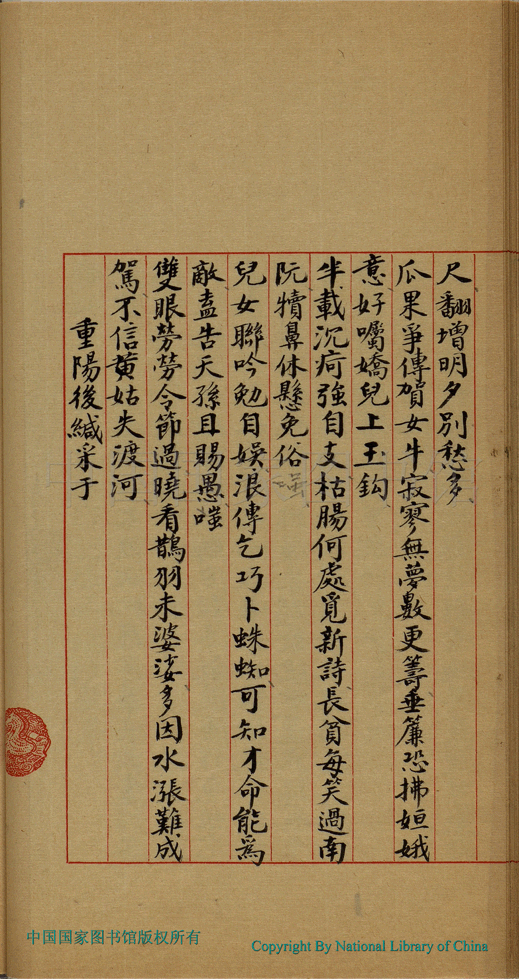 尺翻增明夕別愁多
瓜果爭傳賀女牛寂寥無夢數更籌垂簾恐拂姮娥
意好囑嬌兒上玉鈎
半載沉疴強自支枯腸何處覓新詩長貧每笑過南
阮犢鼻休懸免俗
兒女聯吟勉自娛浪傳乞巧卜蛛蜘可知才命能爲
敵盍告天孫且賜愚嗤
雙眼勞勞令節過曉看鵲羽未婆娑多因水漲難成
駕不信黃姑失渡河
重陽後緘采于
中国国家图书馆版权所有
Copyright By National Library of China